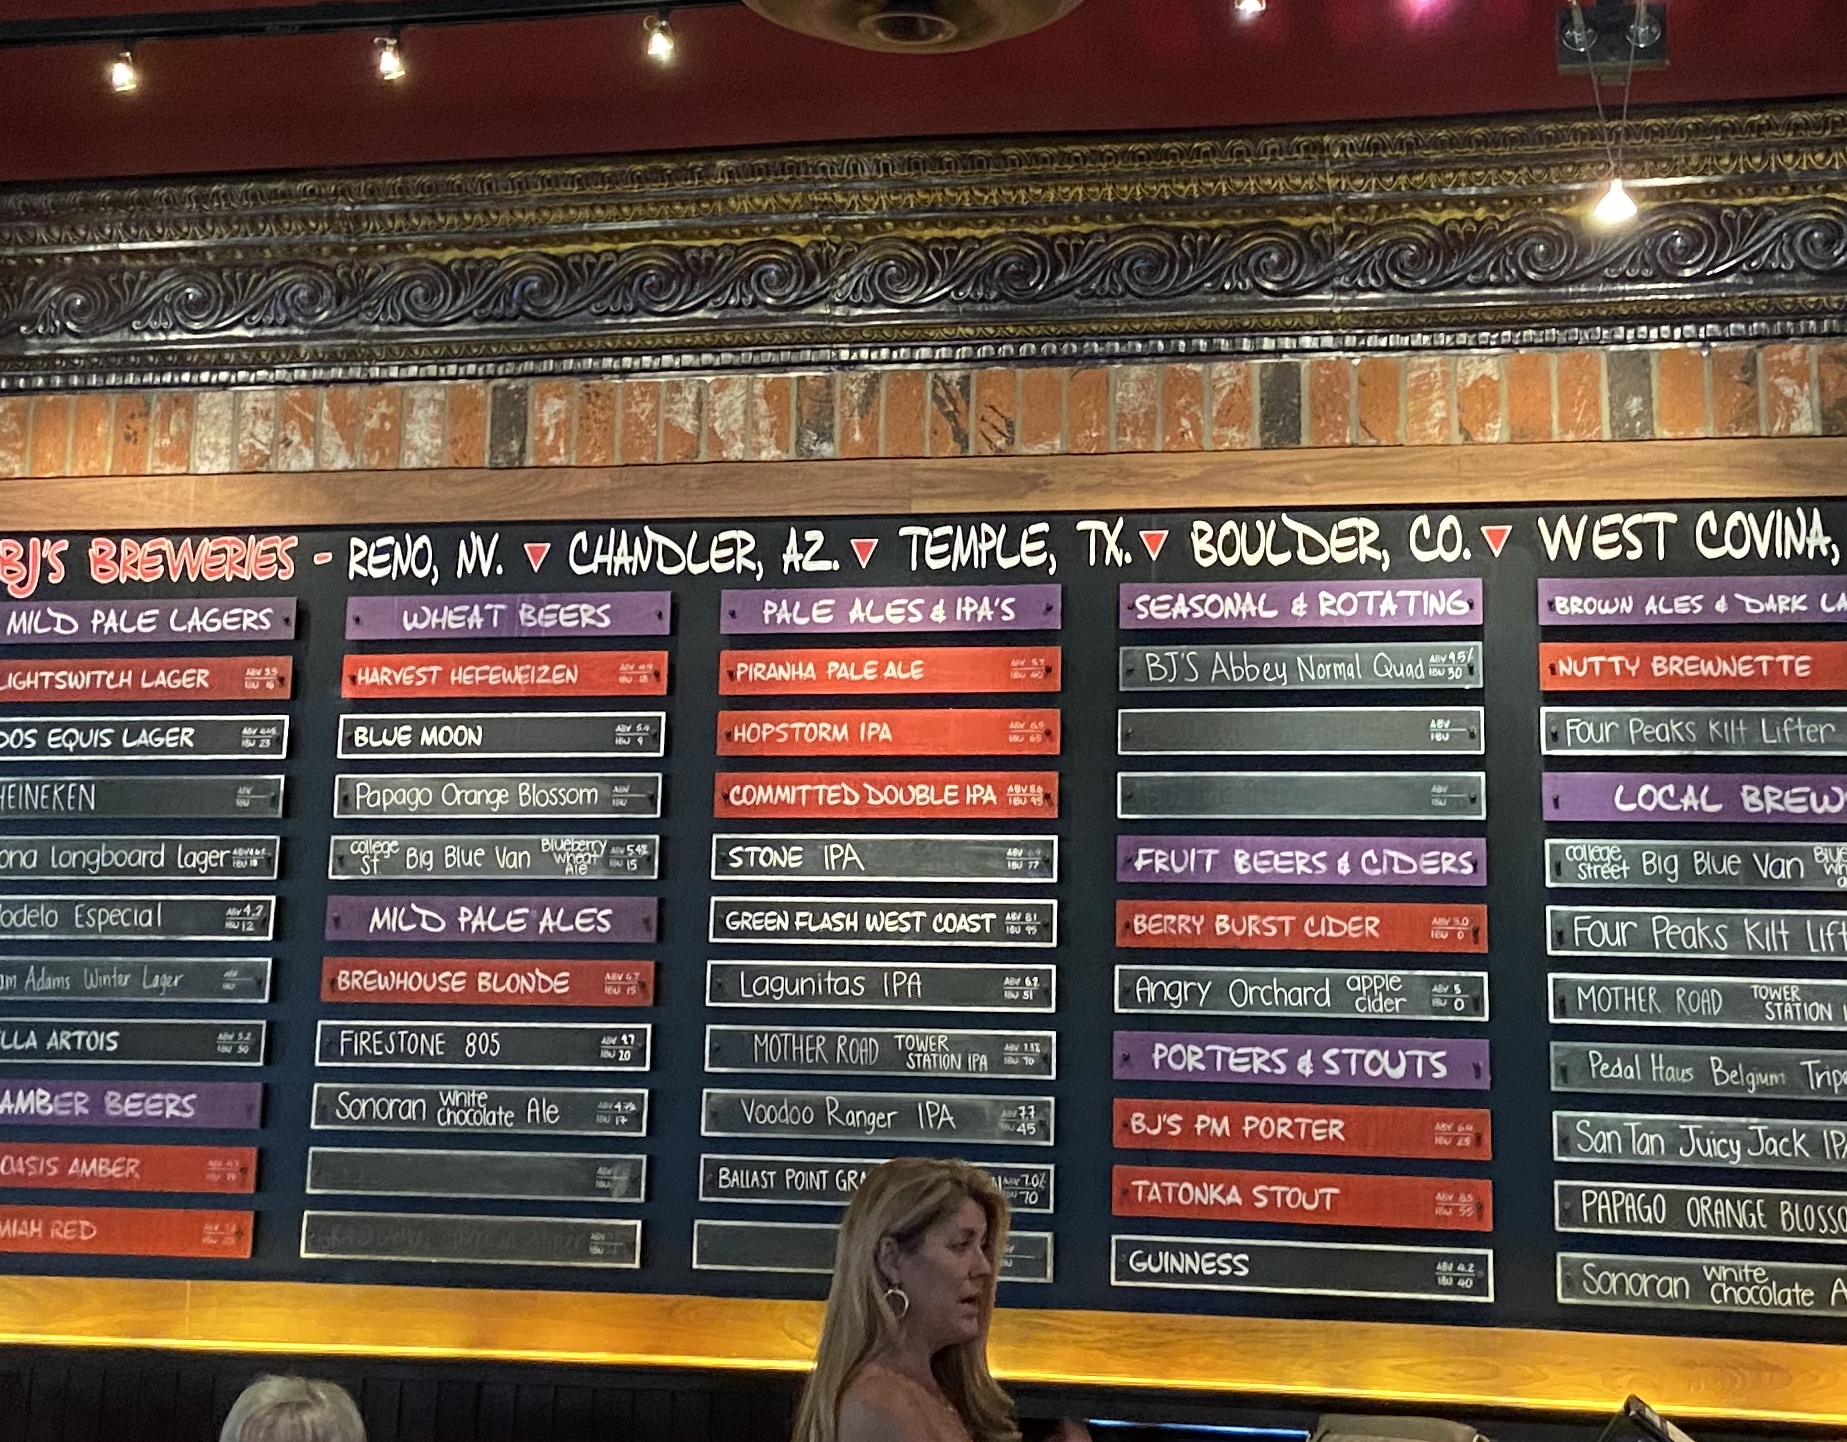 BJ'S BREWERIES - RENO, NV. ▼ CHANDLER, AZ. ▼ TEMPLE, TX. ▼ BOULDER, CO. ▼ WEST COVINA,
MILD PALE LAGERS
LIGHTSWITCH LAGER ABV 3.5
DOS EQUIS LAGER
IBU 23
HEINEKEN ABV
IBU
Longboard Lager
Especial ABV 4.2
IBU 12
Adams Winter Lager ABV
IBU
ARTOIS ABV 5.2
IBU 30
AMBER BEERS
OASIS AMBER
RED
WHEAT BEERS
HARVEST HEFEWEIZEN ABV 4.9
BLUE MOON ABV 5.4
IBU 9
Papago Orange Blossom ABV
IBU
College St. Big Blue Van Blueberry Wheat Ale ABV 5.4%
IBU 15
MILD PALE ALES
BREWHOUSE BLONDE ABV 4.7
IBU 15
FIRESTONE 805 ABV 4.7
IBU 20
Sonoran White Chocolate Ale ABV 4.7%
IBU 17
ABV
IBU
ABV
IBU
PALE ALES & IPA'S
PIRANHA PALE ALE ABV 5.7
HOPSTORM IPA ABV 6.5
IBU 65
COMMITTED DOUBLE IPA ABV 8.6
IBU 95
STONE IPA ABV 6.9
IBU 77
GREEN FLASH WEST COAST ABV 8.1
IBU 95
Lagunitas IPA ABV 6.2
IBU 51
MOTHER ROAD TOWER STATION IPA
IBU 70
Voodoo Ranger IPA ABV 7.7
IBU 45
BALLAST POINT ABV 7.0%
70
SEASONAL & ROTATING
BJ'S Abbey Normal Quad ABV 9.5%
IBU 30
ABV
IBU
ABV
IBU
FRUIT BEERS & CIDERS
BERRY BURST CIDER ABV 5.0
IBU 0
Angry Orchard apple cider ABV 5
IBU 0
PORTERS & STOUTS
BJ'S PM PORTER
TATONKA STOUT ABV 8.5
IBU 55
GUINNESS ABV 4.2
IBU 40
BROWN ALES & DARK
NUTTY BREWNETTE
Four Peaks Kilt Lifter
LOCAL
College Street Big Blue Van
Four Peaks Kilt
MOTHER ROAD TOWER STATION
Pedal Haus Belgium
San Tan Juicy Jack
PAPAGO ORANGE
Sonoran White Chocolate